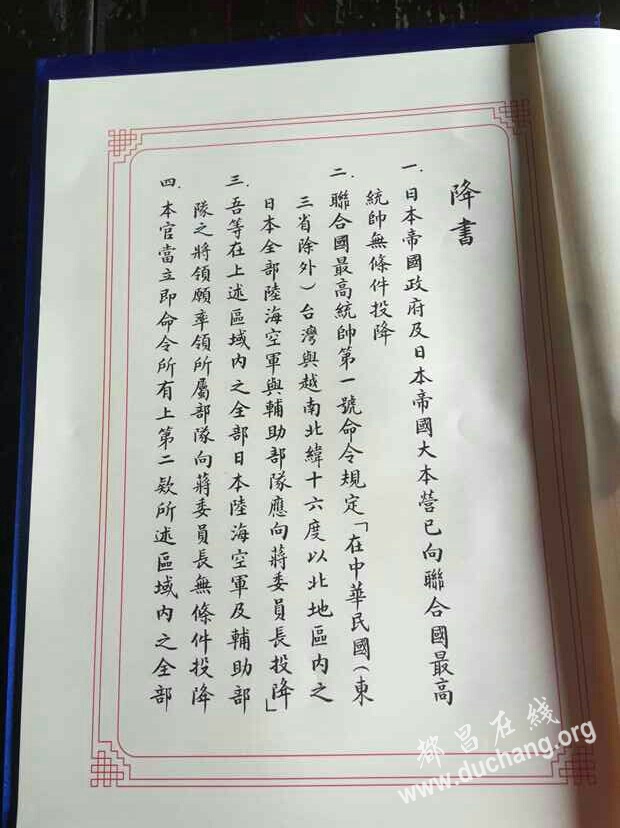 降書
一.日本帝國政府及日本帝國大本營已向聯合國最高
統帥無條件投降
二.聯合國最高統帥第一號命令規定「在中華民國(東
三省除外)台灣與越南北緯十六度以北地區內之
日本全部陸海空軍與輔助部隊應向蔣委員長投降」
三.吾等在上述區域內之全部日本陸海空軍及輔助部
隊之將領願率領所屬部隊向蔣委員長無條件投降
四.本官當立即命令所有上第二款所述區域內之全部
都昌在线
www.duchang.org